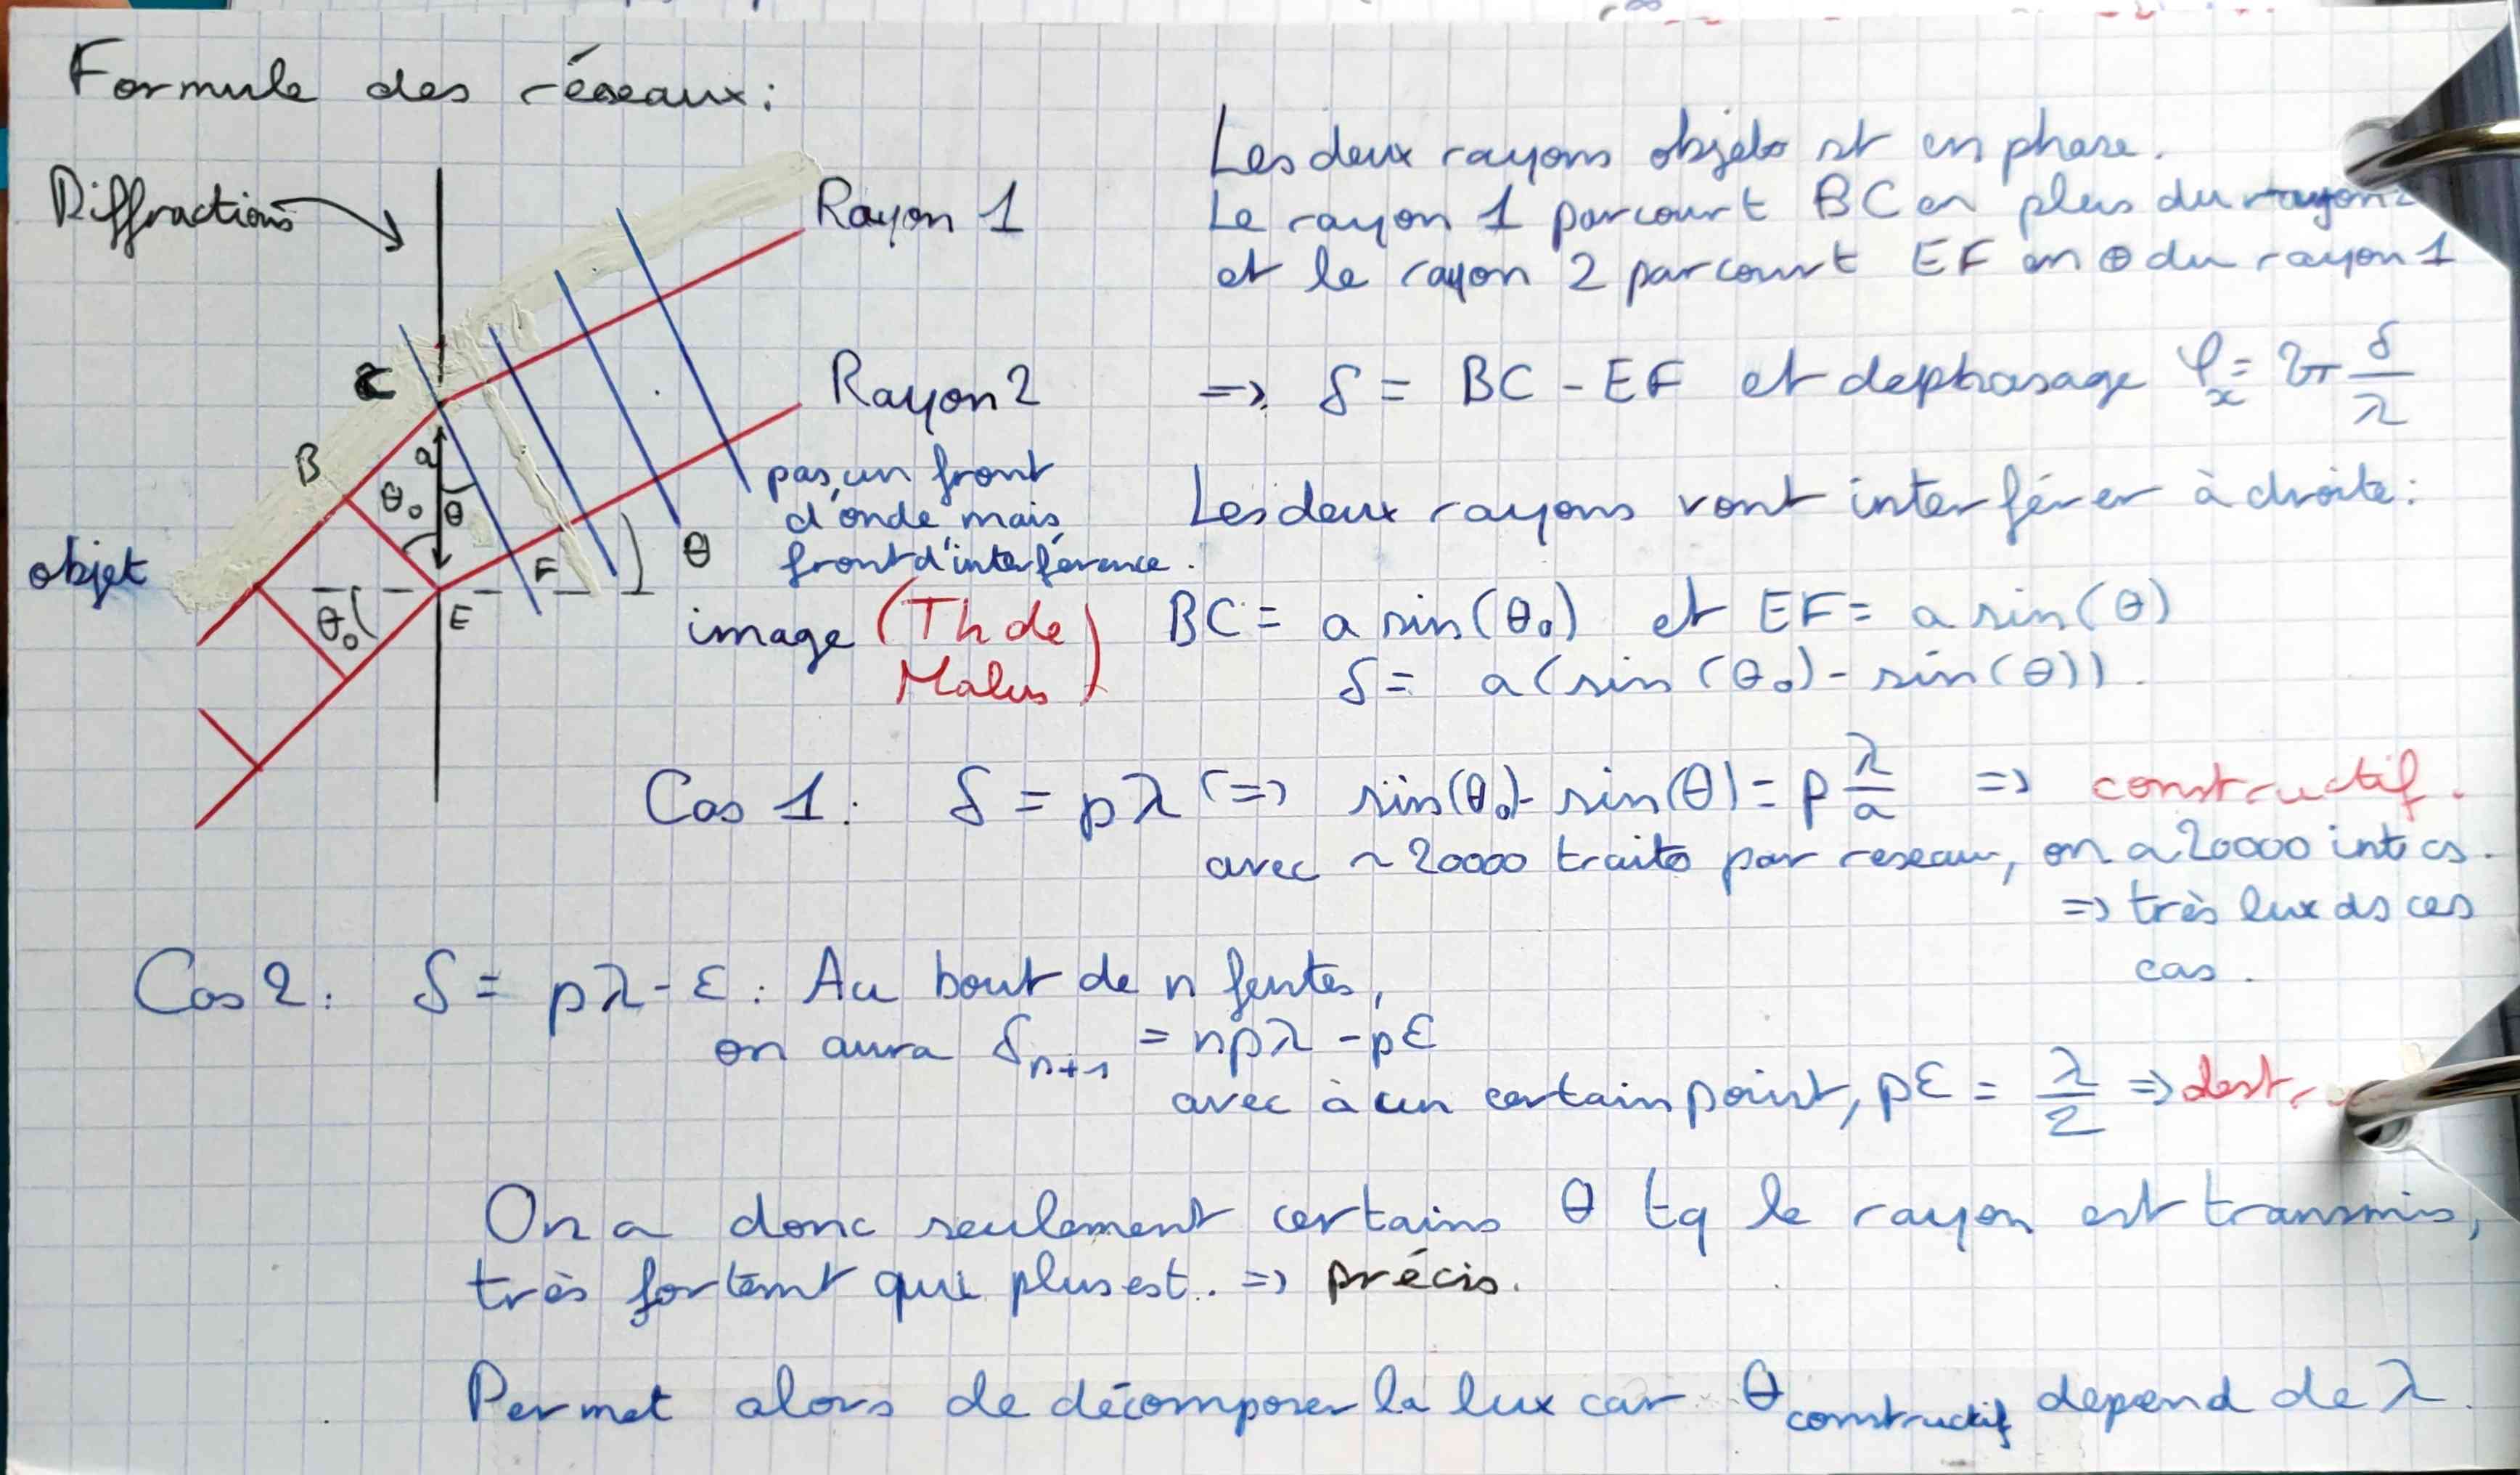 Formule des réseaux:
Diffractions
Rayon 1
Rayon 2
C
B
a
θ₀
θ
F
E
θ₀
θ
objet
pas un front
d'onde mais
front d'interférence.
image (Th de
Malus)
Les deux rayons objets st en phase.
Le rayon 1 parcourt BC en plus du rayon 2
et le rayon 2 parcourt EF en ⊕ du rayon 1
=> δ = BC - EF et dephasage φₓ = 2π δ/λ
Les deux rayons vont interférer à droite:
BC = a sin(θ₀) et EF = a sin(θ)
δ = a(sin(θ₀) - sin(θ)).
Cas 1: δ = pλ <=> sin(θ₀) - sin(θ) = p λ/a => constructif.
avec ~20000 traits par reseau, on a 20000 int cs.
=> très lux ds ces
cas.
Cas 2: δ = pλ - ε: Au bout de n fentes,
on aura δₙ₊₁ = npλ - pε
avec à un certain point, pε = λ/2 => destr
On a donc seulement certains θ tq le rayon est transmis,
très fortemt qui plus est. => précis.
Permet alors de décomposer la lux car θ constructif depend de λ.